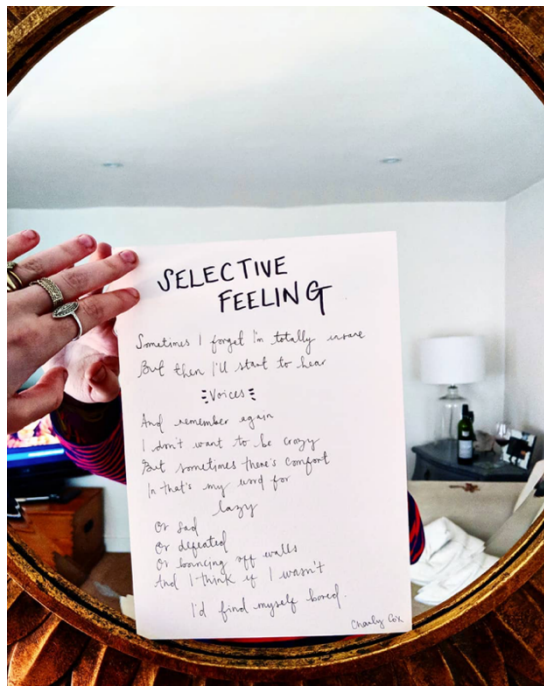 SELECTIVE
FEELING
Sometimes I forget I'm totally insane
But then I'll start to hear
Voices
And remember again
I don't want to be crazy
But sometimes there's comfort
In that's my word for
lazy
Or sad
Or defeated
Or bouncing off walls
And I think if I wasn't
I'd find myself bored.
Charly Cox